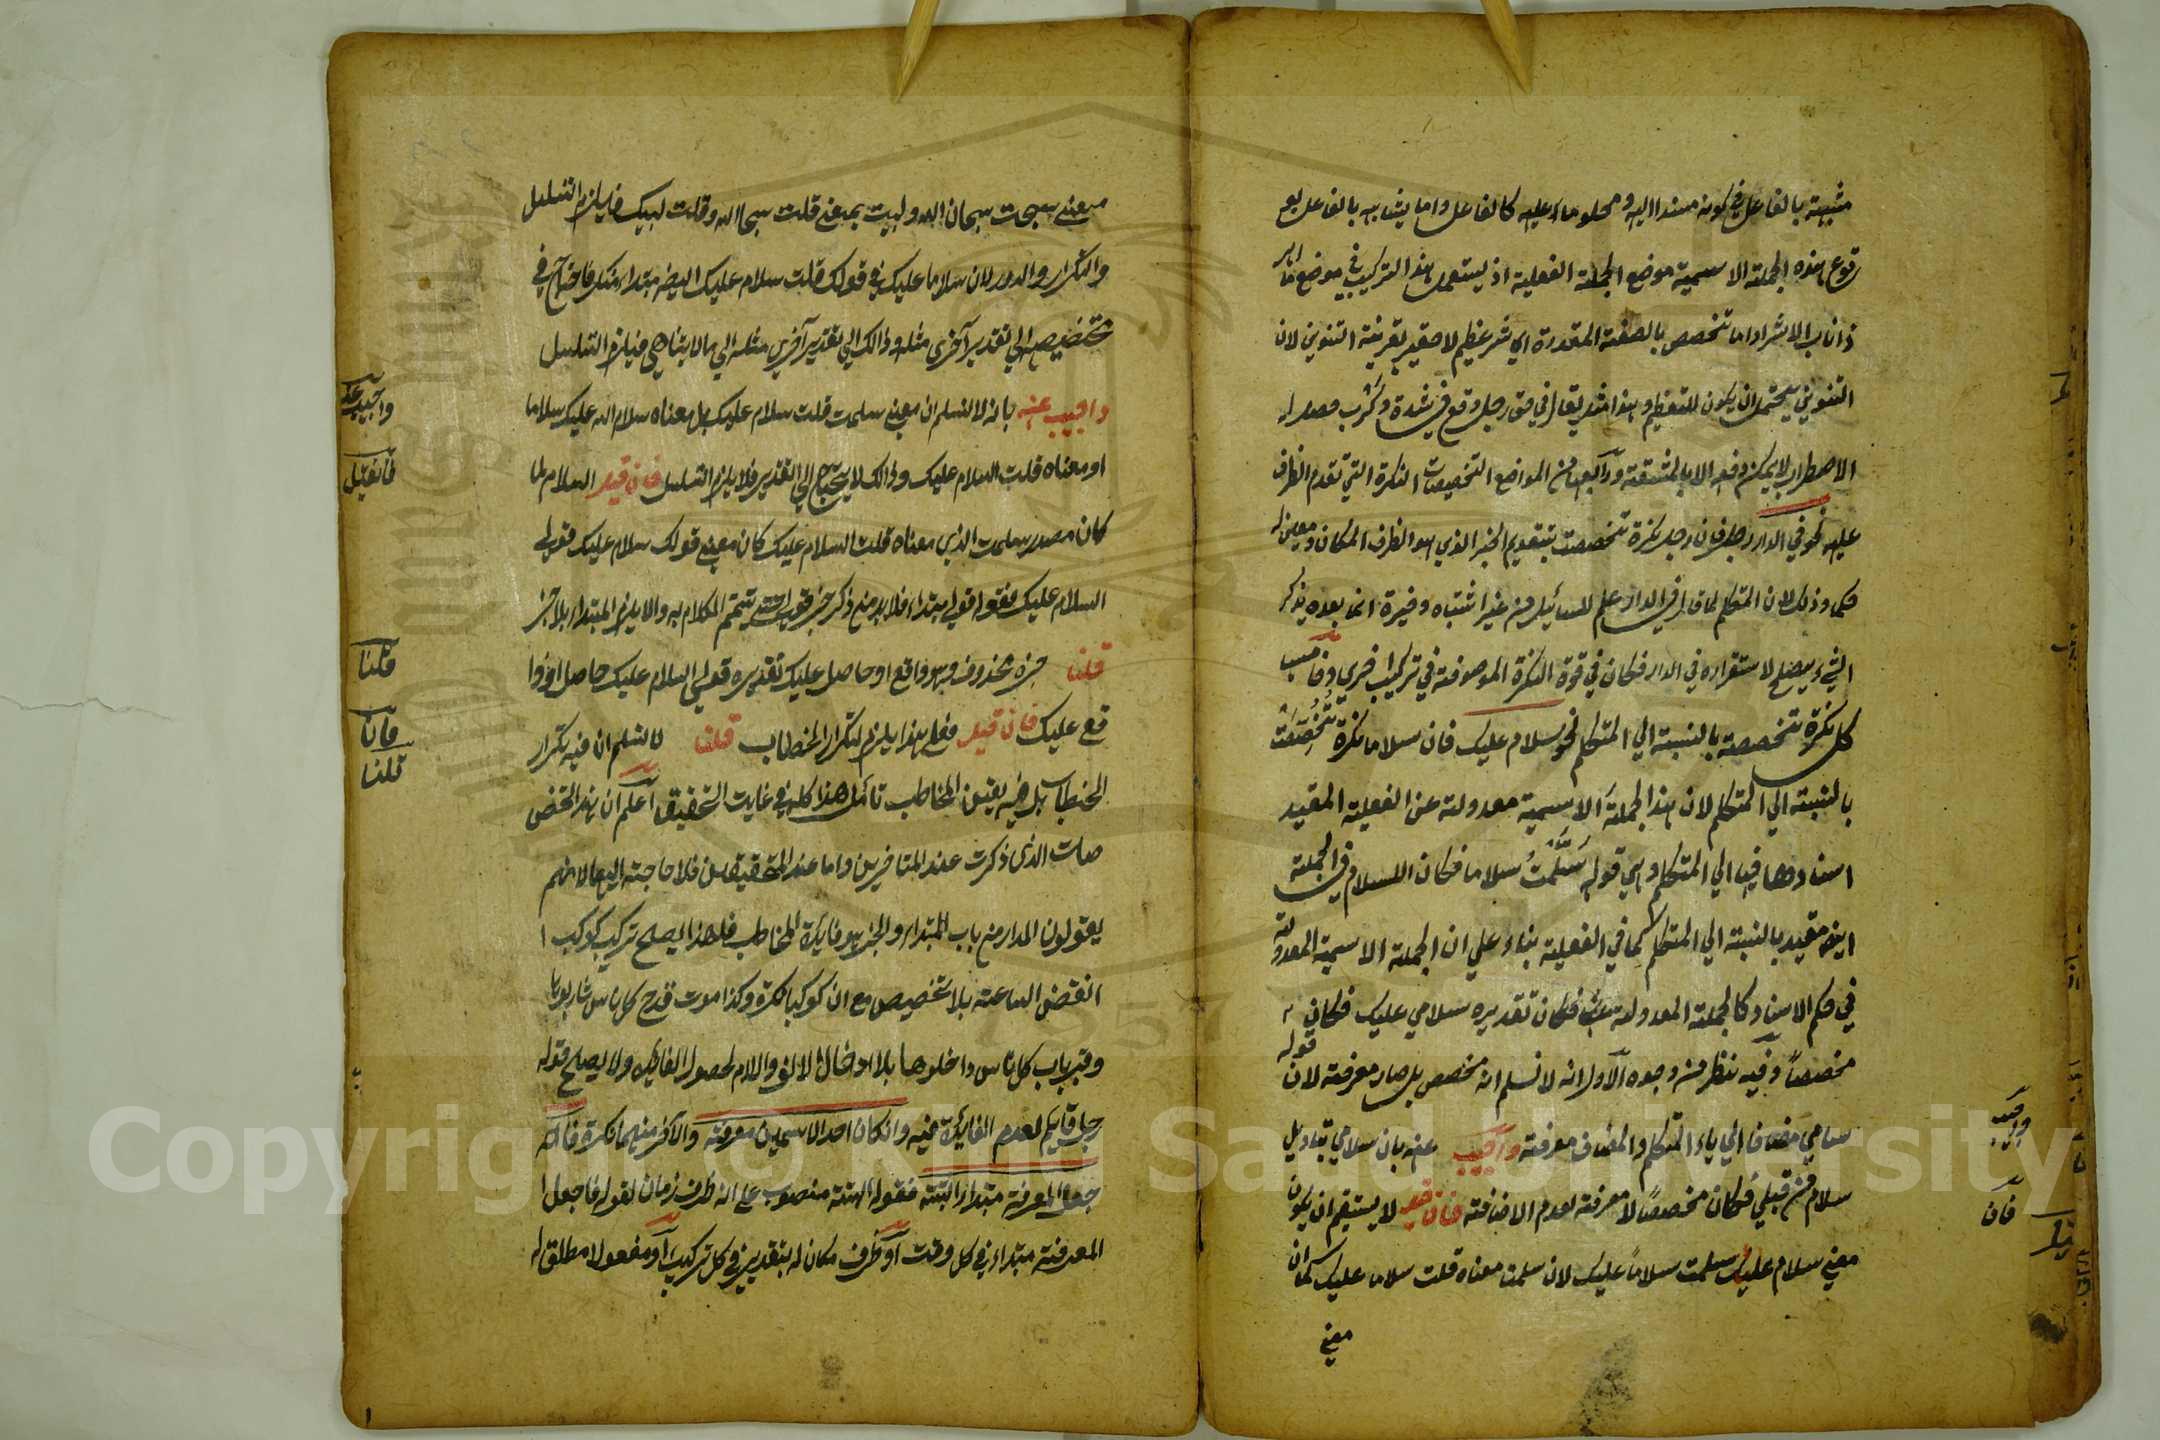 مشبهة بالفاعل في كونه مسندا اليه ومحلوما عليه كالفاعل واما يشابه بالفاعل بو
قوع هذه الجملة الاسمية موضع الجملة الفعلية اذ يستعمل هذا التركيب في موضع ما اهر
ذاناب الا شر اواما تخصص بالصفة المقدرة اي شر عظيم لا صغير بقرينة التنوين لان
التنوين يحتمل ان يكون للتعظيم وهذا مثل يقال في حق رجل وقع في شدة وكرب وصدر له
الاضطراب لا يمكن دفعه الا بالمشقة ورابعها من المواضع التخصيصات النكرة التي تقدم الظرف
عليه نحو في الدار رجل فان رجل نكرة تخصصت بتقديم الخبر الذي هو الظرف المكان ومعين له
حكما وذلك لان المتكلم لما قال في الدار علم للسائل من غير اشتباه وخيرة انما بعده يذكر
الشيء يصلح لاستقراره في الدار فكان في قوة النكرة الموصوفة في تركيب خري وخامسها
كل نكرة تخصصة بالنسبة الي المتكلم نحو سلام عليك فان سلاما نكرة تخصصت
بالنسبة الي المتكلم لان هذا الجملة الاسمية معدولة عن الفعلية المقيد
اسنادها فيها الي المتكلم وهي قوله سلمت سلاما فكان السلام في الجملة
ايضه مقيد بالنسبة الي المتكلم كما في الفعلية بناء علي ان الجملة الاسمية المعدولة
في حكم الاسناد كالجملة المعدولة عنها فكان تقديره سلامي عليك فكان قوله
مخصصا وفيه نظر من وجوه الاول انه لا نسلم انه مخصص بل صار معرفة لان
سلامي مضافا الي ياء المتكلم والمضاف معرفة واجيب عنه بان سلامي بتاويل
سلام من قبلي فكان مخصصا لا معرفة لعدم الاضافة فان قيل لا يستقيم ان يكون
معني سلام عليك سلمت سلاما عليك لان سلمت معناه قلت سلاما عليك كما ان
معني
واجيب
فان
قيل
معني سبحت سبحان الله ولبيت بمعني قلت سبحا الله وقلت لبيك فيلزم التسلسل
والتكرار والدور لان سلاما عليك في قولك قلت سلام عليك ايضه مبتداء منكر فاحتاج في
تخصيصه الي تقدير آخري مثله وذالك الي تقدير آخر من مثله الي مالا يتناهي فيلزم التسلسل
واجيب عنه بانه لا نسلم ان معني سلمت قلت سلام عليك بل معناه سلام الله عليك سلاما
او معناه قلت السلام عليك وذالك لا يحتاج الي التقدير فلا يلزم التسلسل فان قيل السلام لما
كان مصدر سلمت الذي معناه قلت السلام عليك كان معني قولك سلام عليك قولي
السلام عليك فقوله قولي مبتداء فلا بد من ذكر خبر قولي حتي تيتم الكلام به والا يلزم المبتداء بلا خبر
قلنا خبره محذوف وهو واقع او حاصل عليك تقديره قولي السلام عليك حاصل او وا
قع عليك فان قيل فعلي هذا يلزم لتكرار الخطاب قلنا لا نسلم ان فيه تكرار
الخطاب بل فيه يقين المخاطب تامل هذا كله في غايت التحقيق اعلم ان هذا التخص
صات الذي ذكرت عند المتاخرين واما عند المحققين فلا حاجة اليها لانهم
يقولون المدار من باب المبتداء والخبر هو فايدة المخاطب فلهذا يصلح تركيب كوكب ا
انقض الساعة بلا تخصيص مع ان كوكبا نكرة وكذا موت قدح كل ناس شاربوها
وقبر باب كل ناس داخلوها بلا ادخال الالف واللام لحصول الفايدة ولا يصلح قوله
رجل قايم لعدم الفايدة فيه وانكان احد الاسمين معرفة والآخر منهما نكرة فانه
جعل المعرفة مبتداء البتة فقوله البتة منصوب علي انه ظرف زمان لقوله فاجعل ا
المعرفة مبتداء في كل وقت او ظرف مكان له بتقدير في كل تركيب او مفعولا مطلق له
واجيب عنه
فانقيل
قلنا
فانا
قلنا
Copyright © King Saud University